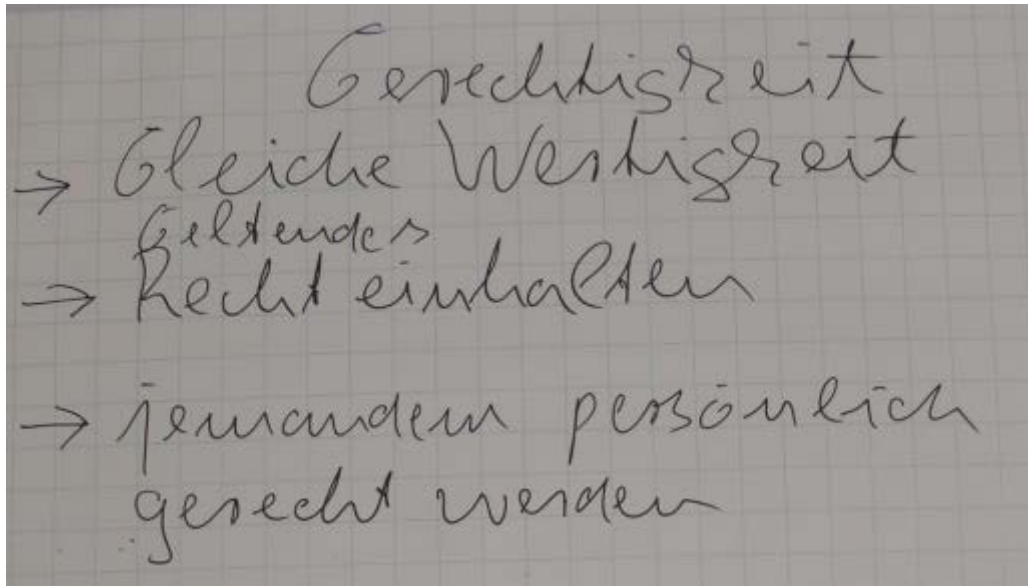 Gerechtigkeit
→ Gleiche Wertigkeit
Geltendes
→ Recht einhalten
→ jemandem persönlich
gerecht werden